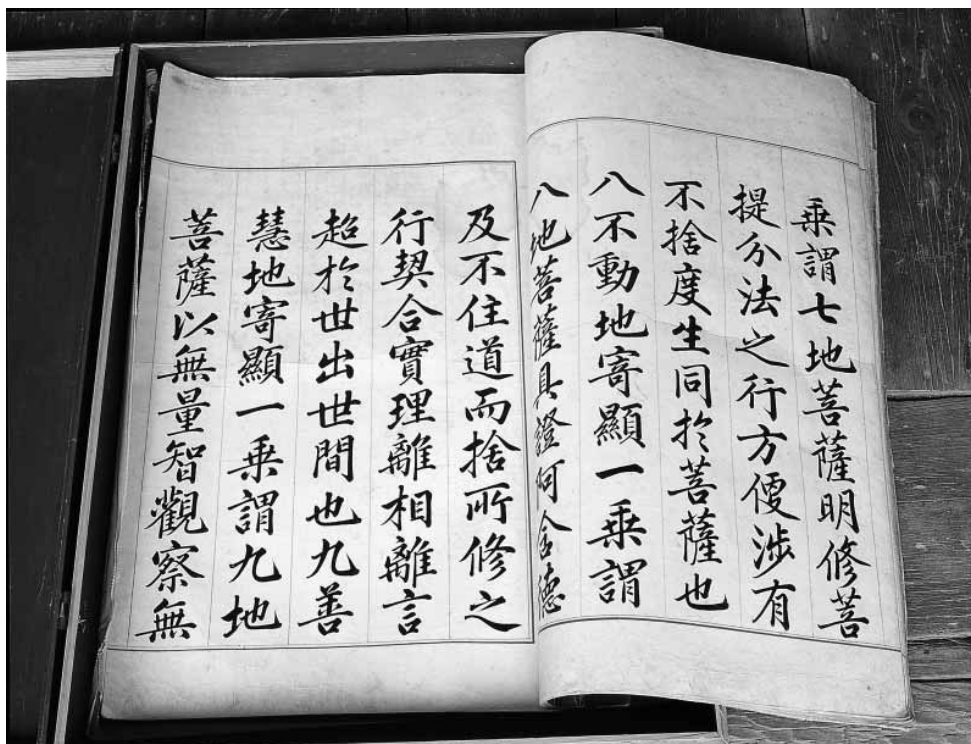 乘謂七地菩薩明修菩
提分法之行方便涉有
不捨度生同於菩薩也
八不動地寄顯一乘謂
八地菩薩具證阿含德
及不住道而捨所修之
行契合實理離相離言
超於世出世間也九善
慧地寄顯一乘謂九地
菩薩以無量智觀察無